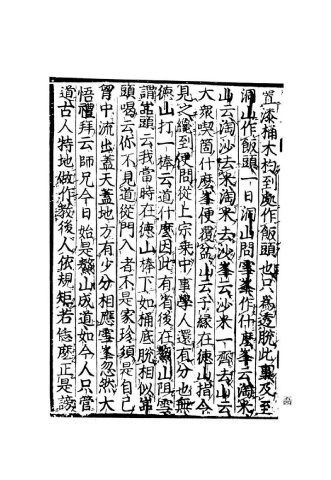 置漆桶木杓到處作飯頭也只為透脫此事及至
洞山作飯頭一日洞山問雪峯作什麼峯云淘米
山云淘沙去米淘米去沙峯云沙米一齊去山云
大衆喫箇什麼峯便覆盆山云子緣在德山指令
見之纔到便問從上宗乘中事學人還有分也無
德山打一棒云道什麼因此有省後在鰲山阻雪
謂嵓頭云我當時在德山棒下如桶底脫相似嵓
頭喝云你不見道從門入者不是家珍須是自己
胷中流出蓋天蓋地方有少分相應雪峯忽然大
悟禮拜云師兄今日始是鰲山成道如今人只管
道古人特地做作教後人依規矩若恁麼正是謗